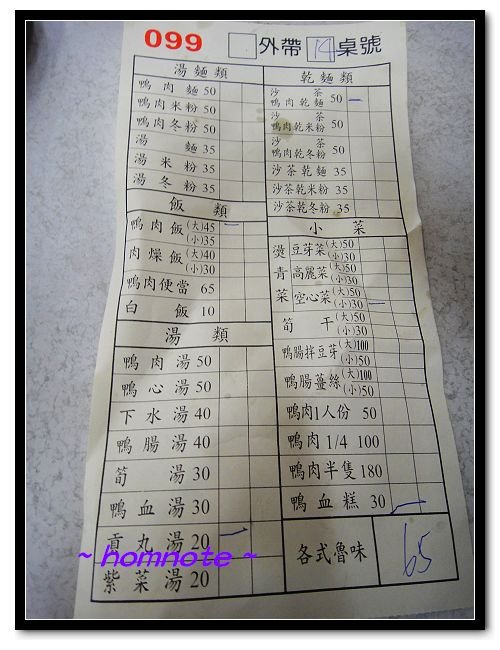 099 外帶 14 桌號
湯麵類
鴨肉麵 50
鴨肉米粉 50
鴨肉冬粉 50
湯麵 35
湯米粉 35
湯冬粉 35
飯類
鴨肉飯 (大)45 (小)35
肉燥飯 (大)40 (小)30
鴨肉便當 65
白飯 10
湯類
鴨肉湯 50
鴨心湯 50
下水湯 40
鴨腸湯 40
筍湯 30
鴨血湯 30
貢丸湯 20
紫菜湯 20
乾麵類
沙茶鴨肉乾麵 50
沙茶鴨肉乾米粉 50
沙茶鴨肉乾冬粉 50
沙茶乾麵 35
沙茶乾米粉 35
沙茶乾冬粉 35
小菜
燙青菜
豆芽菜 (大)50 (小)30
高麗菜 (大)50 (小)30
空心菜 (大)50 (小)30
筍干 (大)50 (小)30
鴨腸拌豆芽 (大)100 (小)50
鴨腸薑絲 (大)100 (小)50
鴨肉1人份 50
鴨肉1/4 100
鴨肉半隻 180
鴨血糕 30
各式魯味 65
~ homnote ~